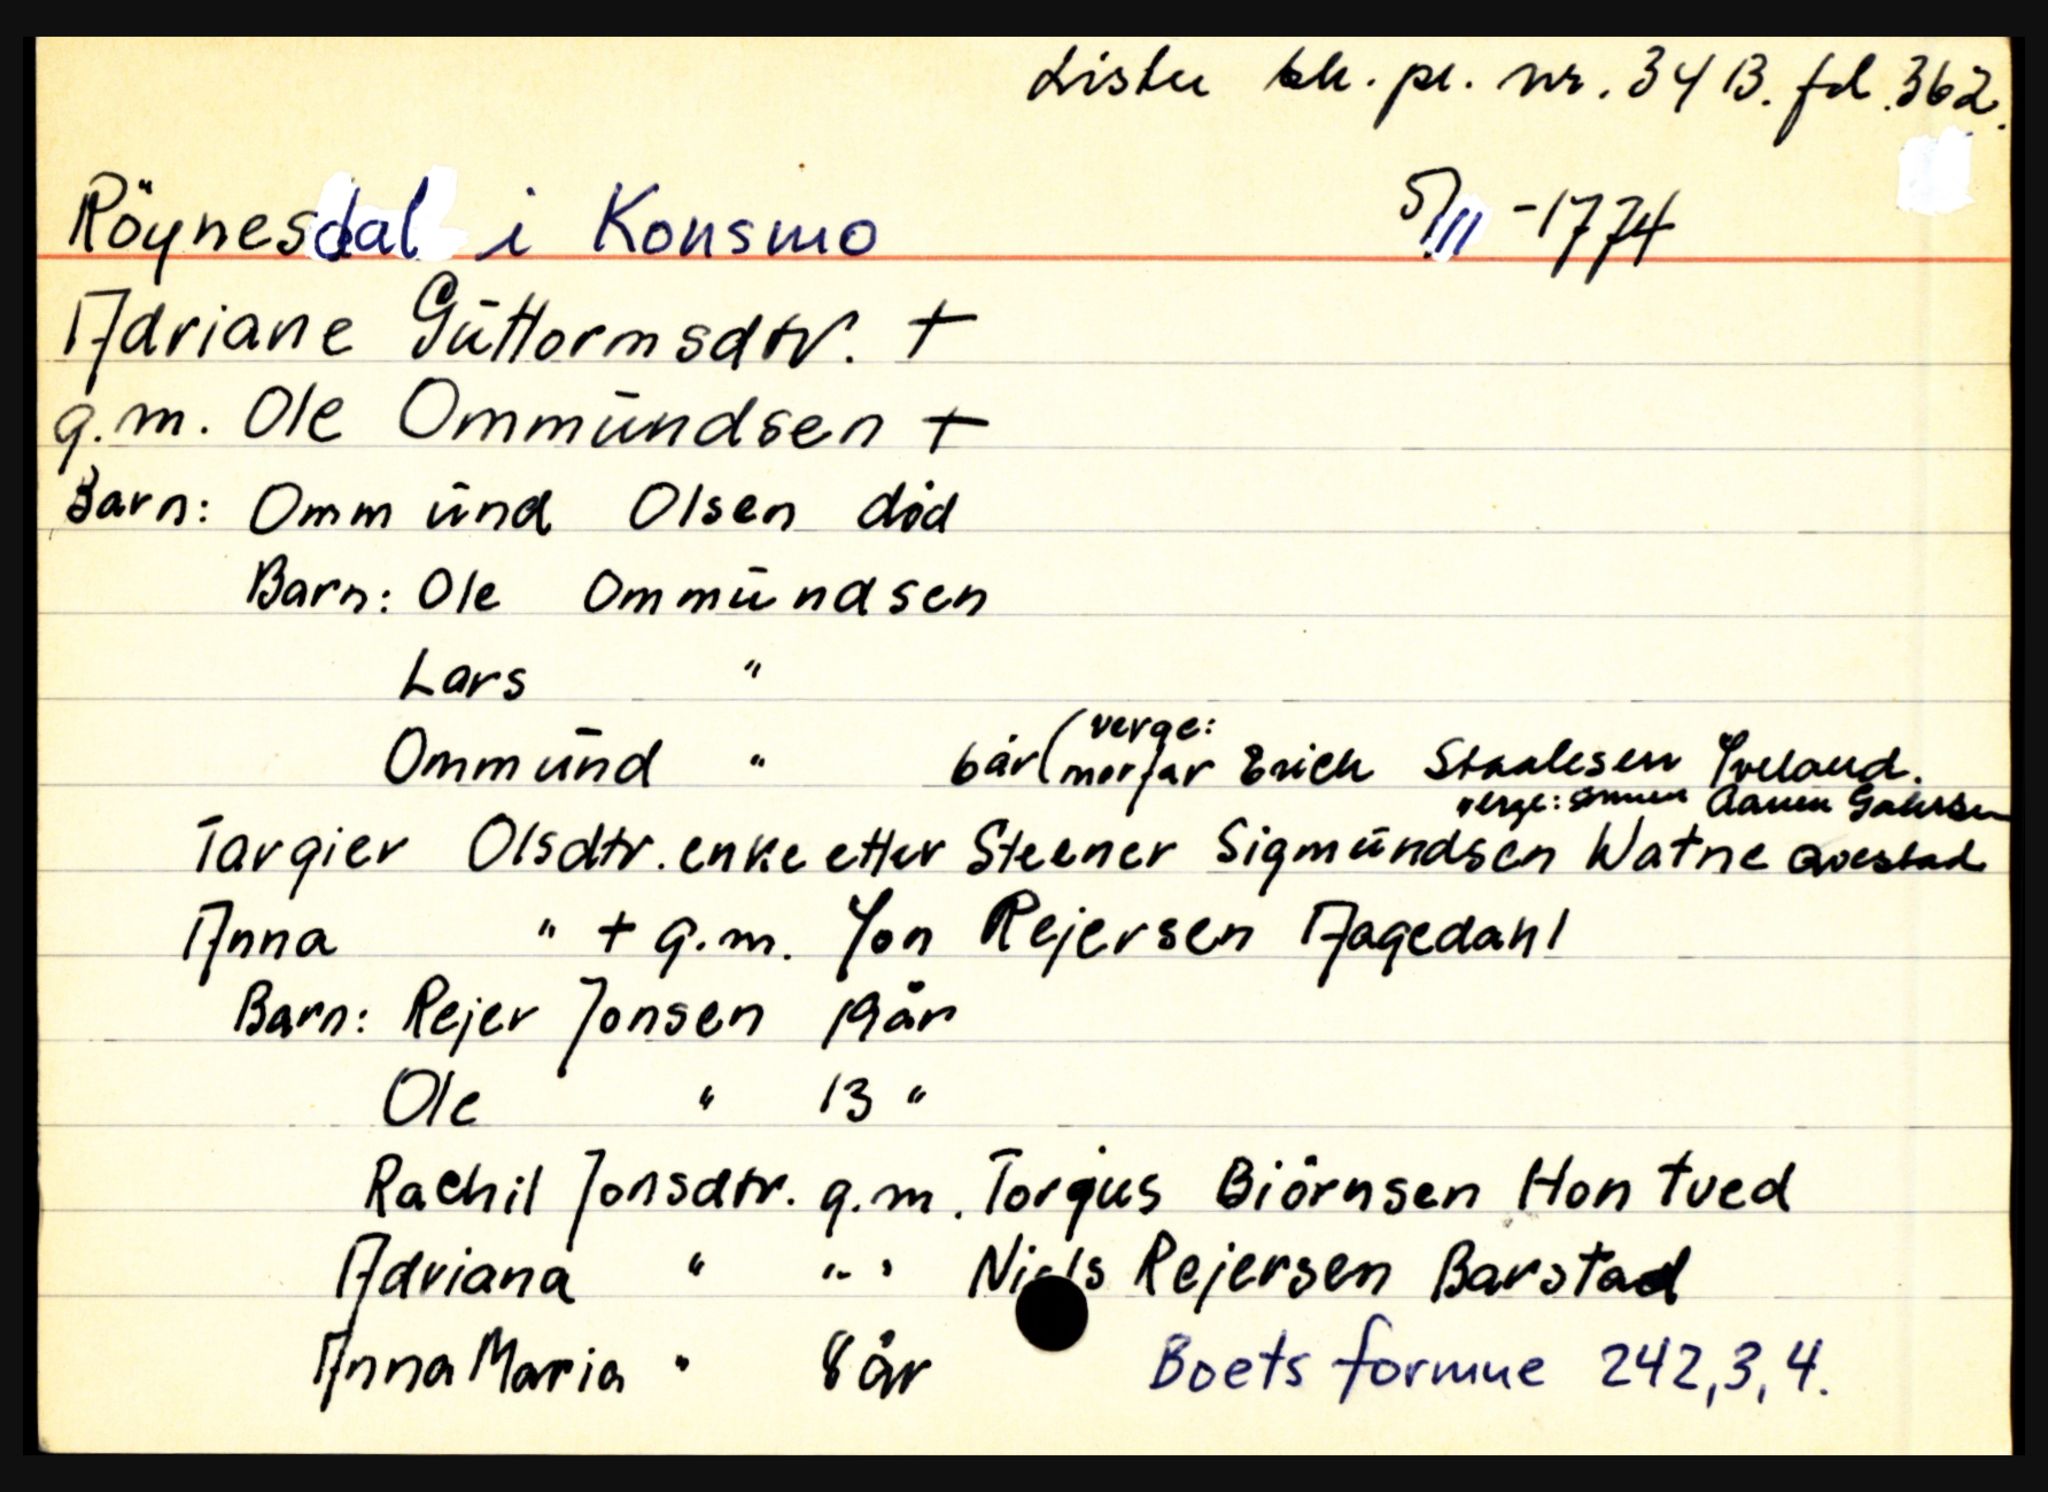 Lister sk. pr. nr. 34 B. fol. 362.
Röynesdal i Konsmo 5/11 -1774
Adriane Gūttormsdtr. +
g.m. Ole Ommūndsen +
Barn: Ommūnd Olsen död
Barn: Ole Ommūndsen
Lars "
Ommūnd " 6 år (verge:
morfar Erich Staalesen Ypeland.
verge: Aanen
Targier Olsdtr. enke etter Steener Sigmūndsen Watne Qvestad
Anna " + g.m. Jon Rejersen Aagedahl
Barn: Rejer Jonsen 19 år
Ole " 13 "
Rachil Jonsdtr. g.m. Torgus Biörnsen Hontved
Adriana " " " Niels Rejersen Barstad
Anna Maria " 8 år Boets formue 242,3,4.